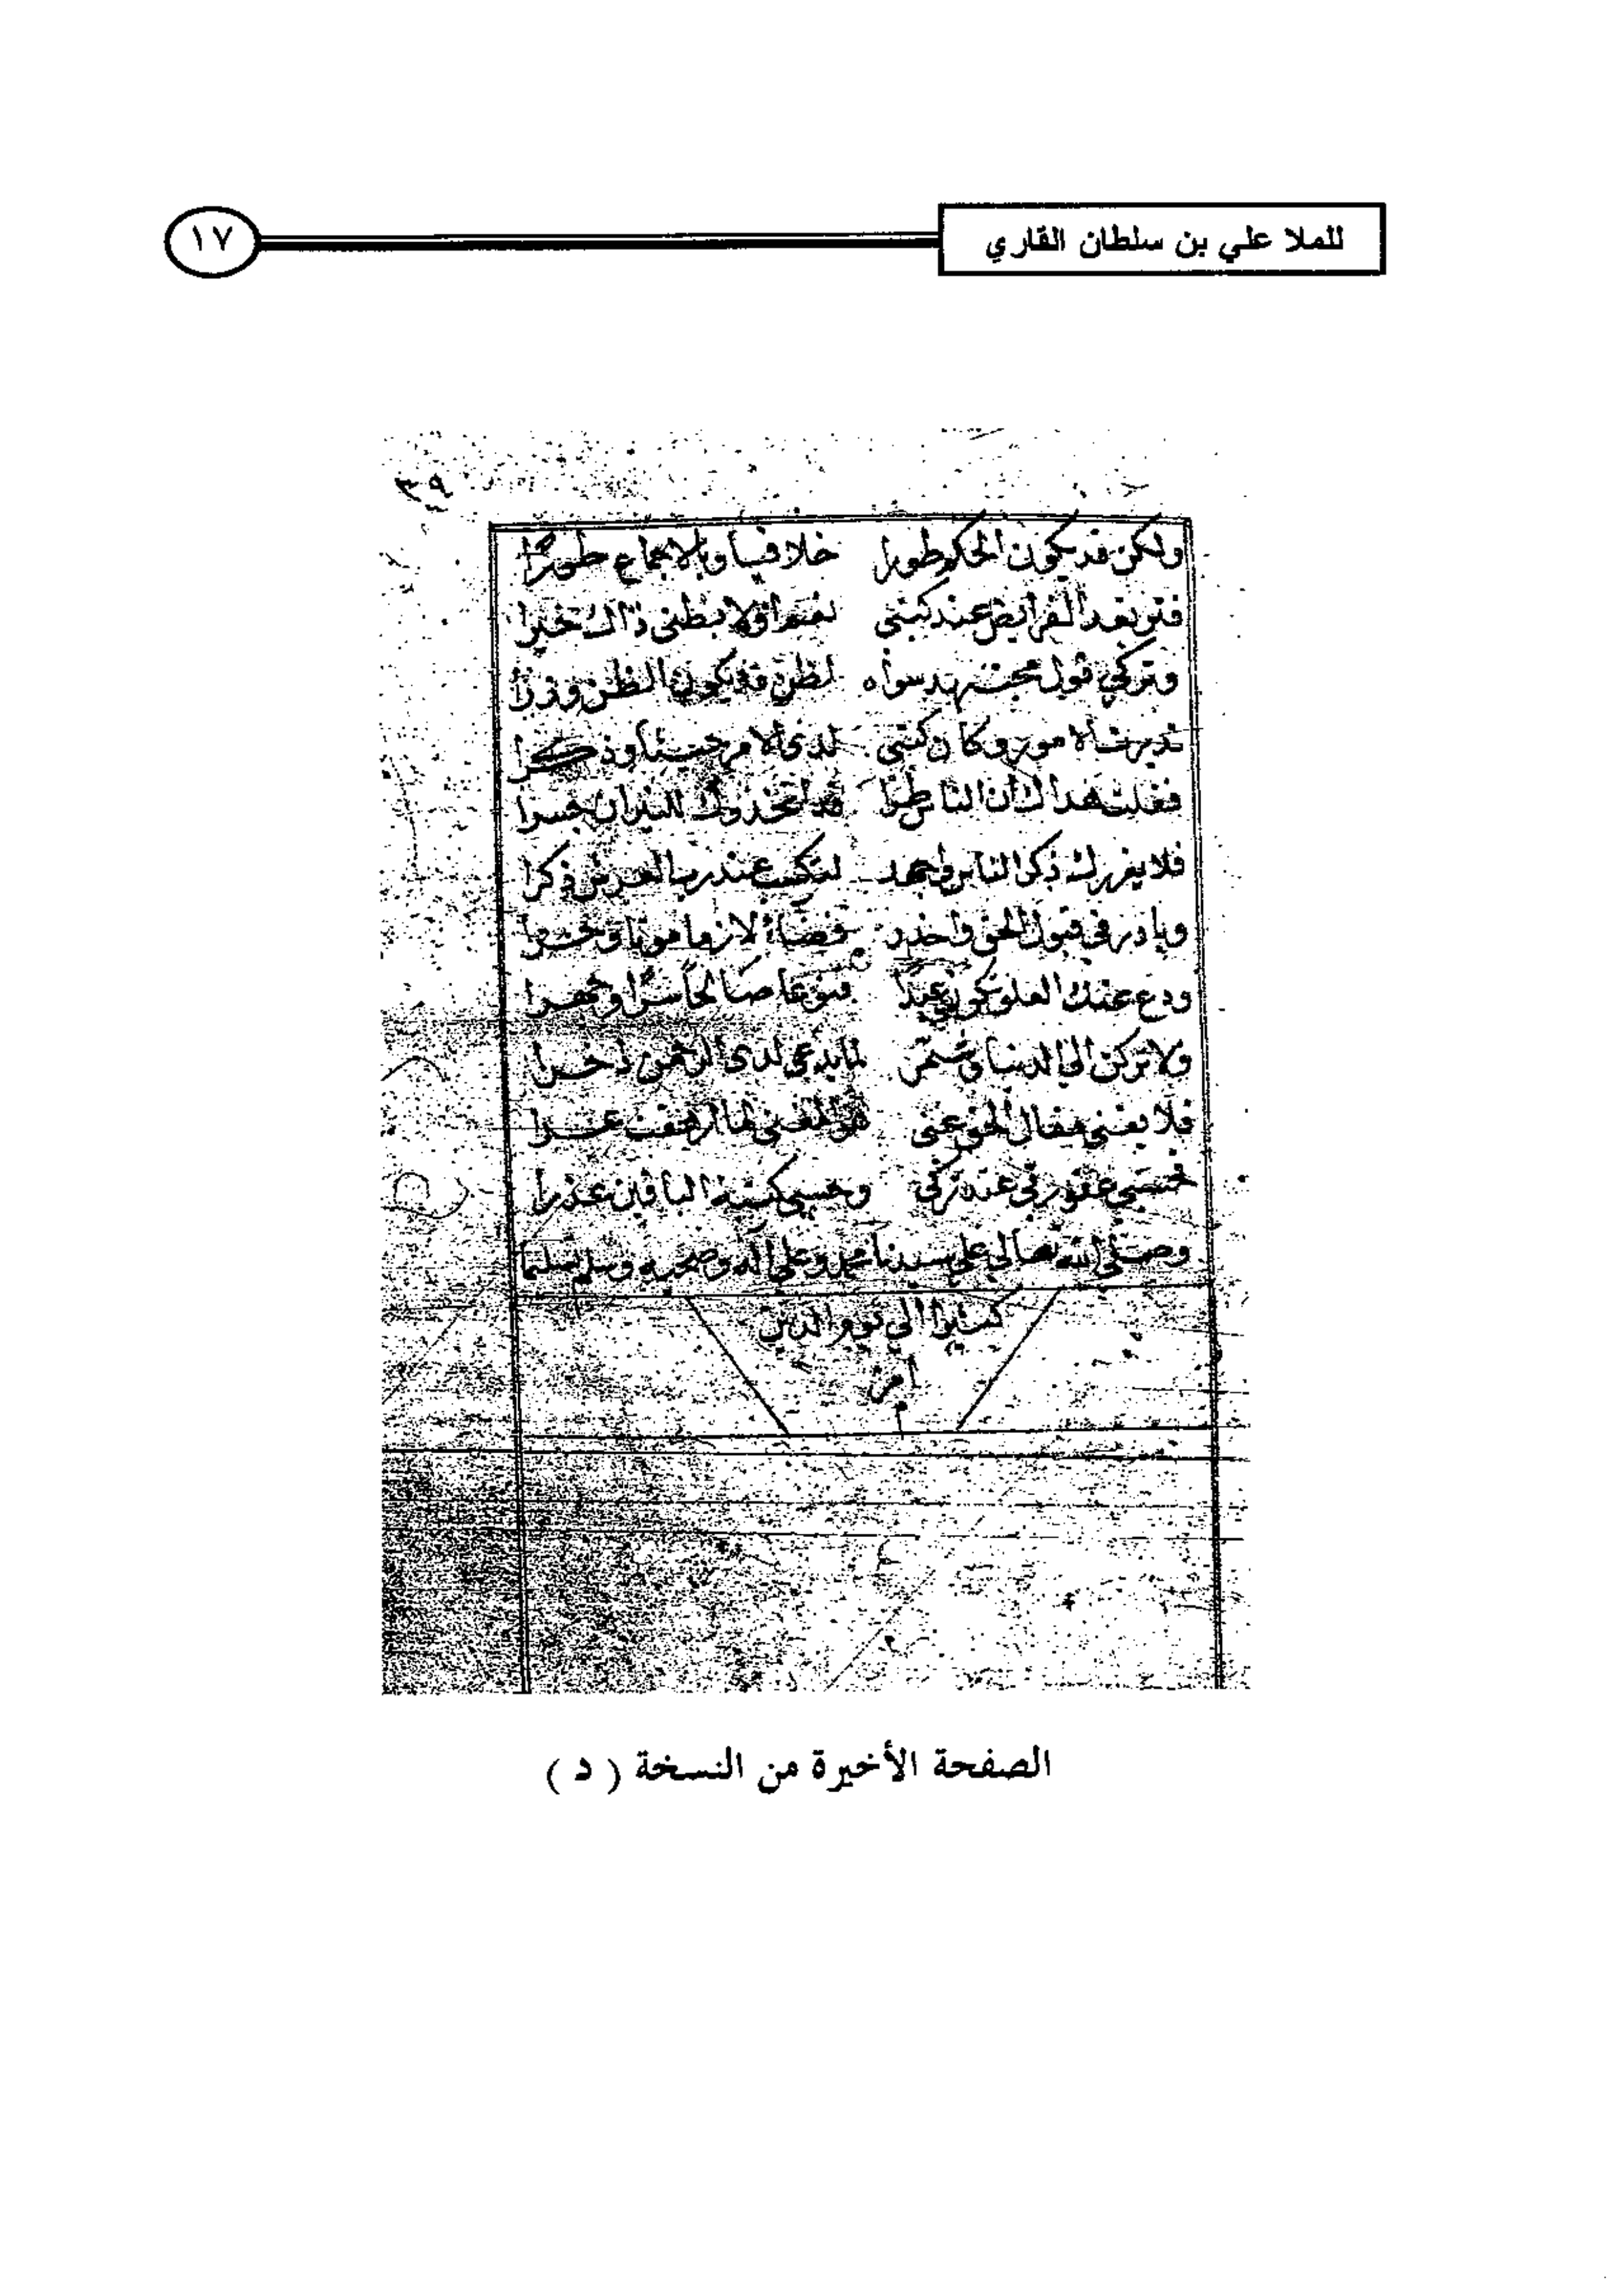 للملا علي بن سلطان القاري
١٧
٣٩
ولكن قد يكون الحكم طورا خلافيا وبالاجماع طورا
الفرايض عند كتبتي ذاك خيرا
وتركي قول مجتهد سواه لظن قد يكون الظن وزرا
الامور وكان كتبتي لدى الامر وذكرا
فقلت هداك ان الناس طرا قد اتخذوك للنيران جسرا
فلا يغررك ذكر الناس واجهد لتكسب عند رب العرش ذكرا
وبادر في قبول الحق واحذر قضاء لازما موتا وحشرا
ودع عنك العلو وكون عبدا صالحا سرا وجهرا
ولا تركن الى الدنيا وشمر لما يدعى لدى الرحمن ذخرا
فلا يغني مقال الحق عني
فحسبي عنه تركي وحسبي كتبة الباقين عذرا
وصلى الله تعالى على سيدنا محمد وعلى اله وصحبه وسلم تسليما
كثيرا الى يوم الدين
امين
الصفحة الأخيرة من النسخة ( د )